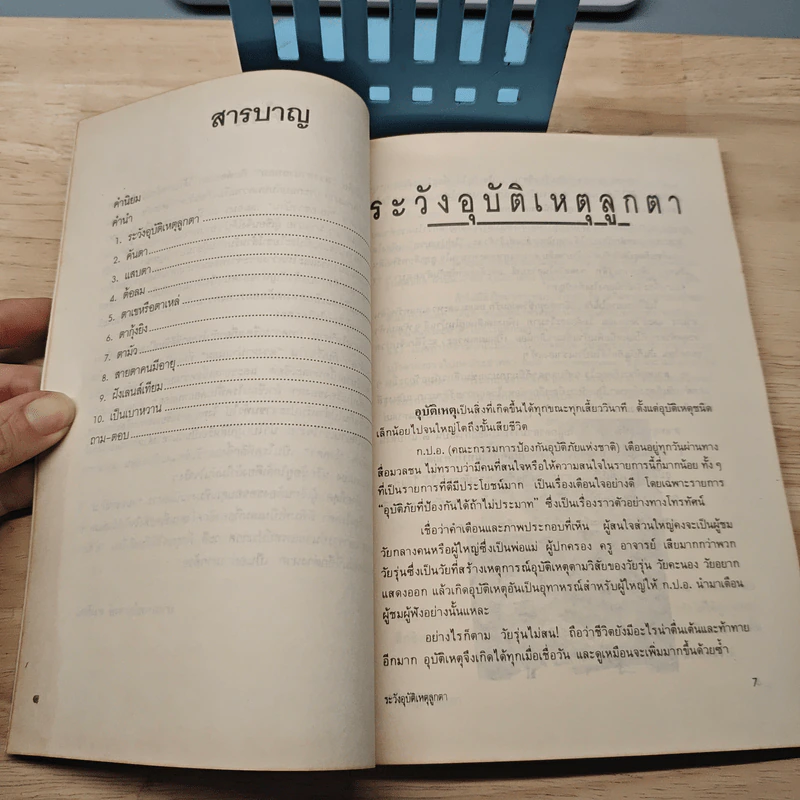 สารบาญ
คำนิยม
คำนำ
1. ระวังอุบัติเหตุลูกตา
2. คันตา
3. แสบตา
4. ต้อลม
5. ตาเขหรือตาเหล่
6. ตากุ้งยิง
7. ตามัว
8. สายตาคนมีอายุ
9. ฝังเลนส์เทียม
10. เป็นเบาหวาน
ถาม-ตอบ
ระวังอุบัติเหตุลูกตา
อุบัติเหตุเป็นสิ่งที่เกิดขึ้นได้ทุกขณะทุกเสี้ยววินาที ตั้งแต่อุบัติเหตุชนิด
เล็กน้อยไปจนใหญ่โตถึงขั้นเสียชีวิต
ก.ป.อ. (คณะกรรมการป้องกันอุบัติภัยแห่งชาติ) เตือนอยู่ทุกวันผ่านทาง
สื่อมวลชน ไม่ทราบว่ามีคนที่สนใจหรือให้ความสนใจในรายการนี้กี่มากน้อย ทั้ง ๆ
ที่เป็นรายการที่ดีมีประโยชน์มาก เป็นเรื่องเตือนใจอย่างดี โดยเฉพาะรายการ
“อุบัติภัยที่ป้องกันได้ถ้าไม่ประมาท” ซึ่งเป็นเรื่องราวตัวอย่างทางโทรทัศน์
เชื่อว่าคำเตือนและภาพประกอบที่เห็น ผู้สนใจส่วนใหญ่คงจะเป็นผู้ชม
วัยกลางคนหรือผู้ใหญ่ซึ่งเป็นพ่อแม่ ผู้ปกครอง ครู อาจารย์ เสียมากกว่าพวก
วัยรุ่นซึ่งเป็นวัยที่สร้างเหตุการณ์อุบัติเหตุตามวิสัยของวัยรุ่น วัยคะนอง วัยอยาก
แสดงออก แล้วเกิดอุบัติเหตุอันเป็นอุทาหรณ์สำหรับผู้ใหญ่ให้ ก.ป.อ. นำมาเตือน
ผู้ชมผู้ฟังอย่างนั้นแหละ
อย่างไรก็ตาม วัยรุ่นไม่สน! ถือว่าชีวิตยังมีอะไรน่าตื่นเต้นและท้าทาย
อีกมาก อุบัติเหตุจึงเกิดได้ทุกเมื่อเชื่อวัน และดูเหมือนจะเพิ่มมากขึ้นด้วยซ้ำ
ระวังอุบัติเหตุลูกตา
7